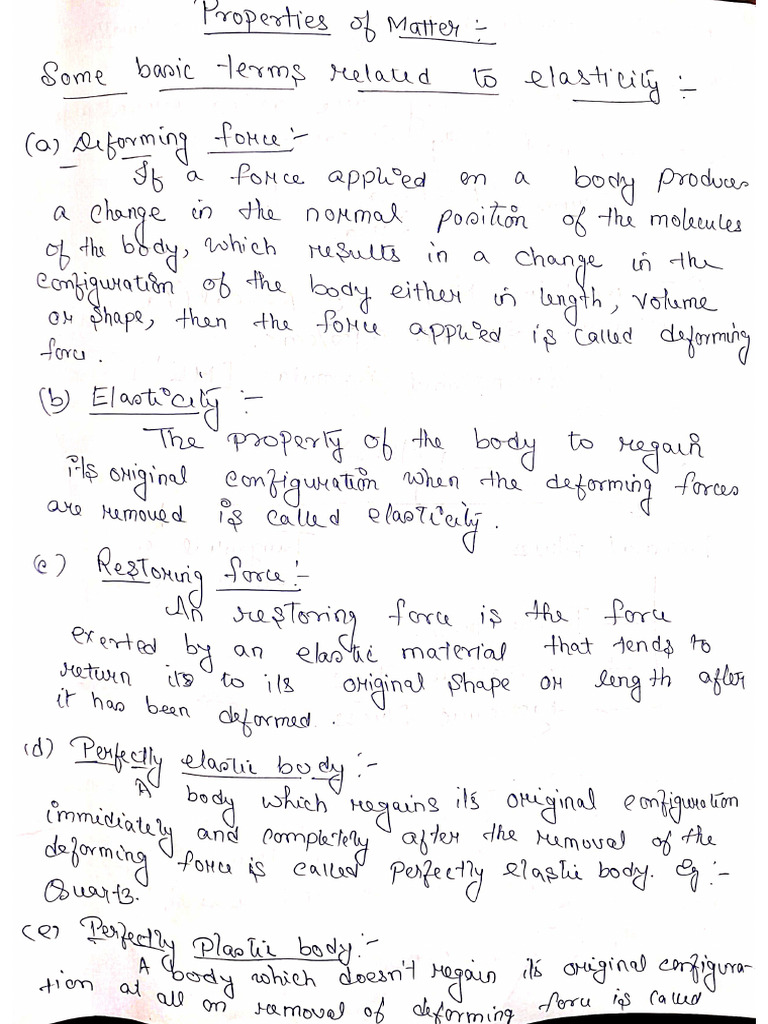 Properties of Matter :-
Some basic terms related to elasticity :-
(a) Deforming force :-
If a force applied on a body produces
a change in the normal position of the molecules
of the body, which results in a change in the
configuration of the body either in length, volume
or shape, then the force applied is called deforming
force.
(b) Elasticity :-
The property of the body to regain
its original configuration when the deforming forces
are removed is called elasticity.
(c) Restoring force :-
An restoring force is the force
exerted by an elastic material that tends to
return its to its original shape or length after
it has been deformed.
(d) Perfectly elastic body :-
A body which regains its original configuration
immidiately and completely after the removal of the
deforming force is called perfectly elastic body. Eg :-
Quartz.
(e) Perfectly Plastic body :-
A body which doesn't regain its original configura-
tion at all on removal of deforming force is called